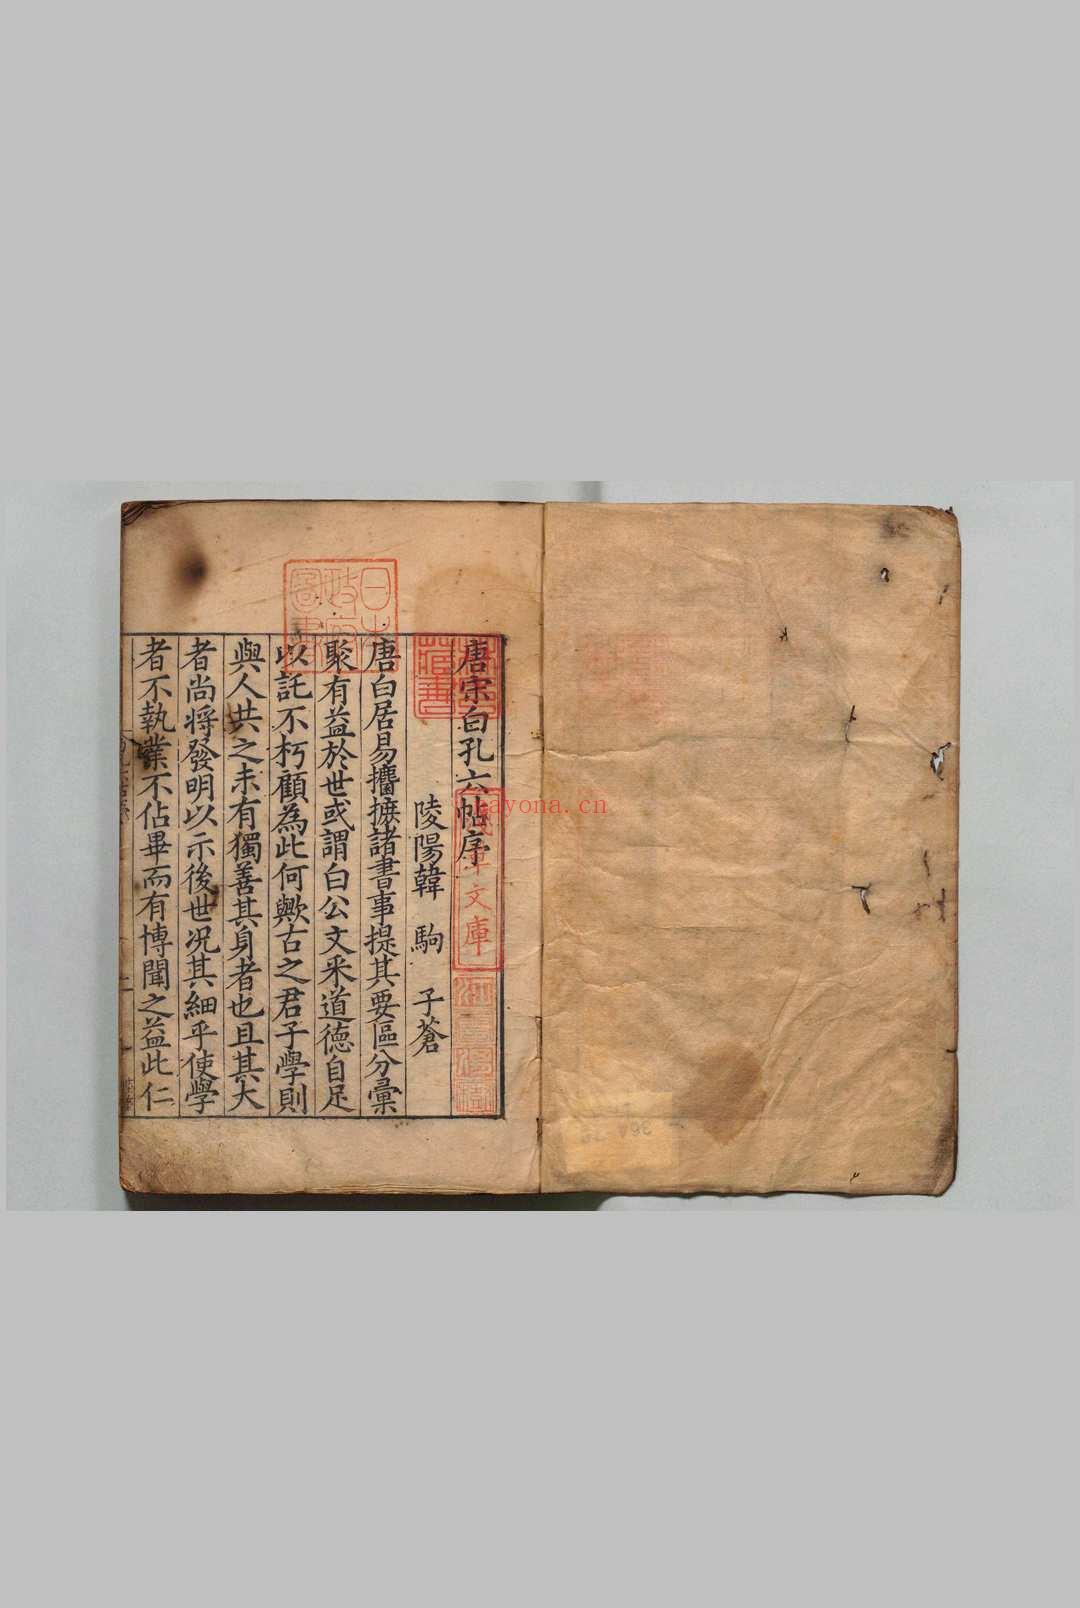 唐宋白孔六帖序
陵陽韓 駒 子蒼
唐白居易攟摭諸書事提其要區分彙
聚有益於世或謂白公文采道德自足
以託不朽顧為此何歟古之君子學則
與人共之未有獨善其身者也且其大
者尚將發明以示後世况其細乎使學
者不執業不佔畢而有博聞之益此仁
日本
政府
圖書
文庫
ayona.cn